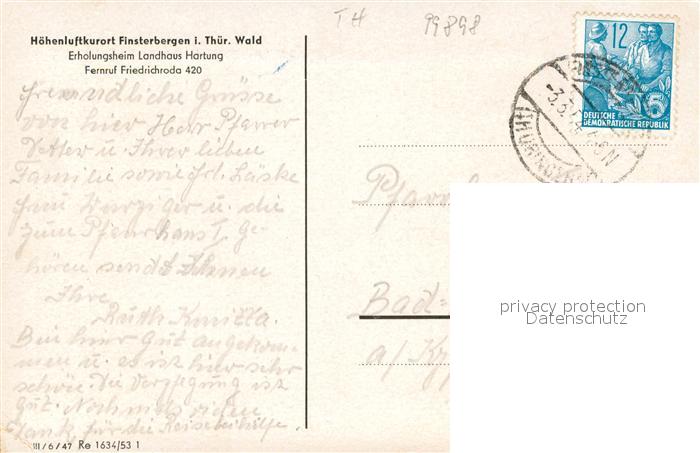 TH 99898
Höhenluftkurort Finsterbergen i. Thür. Wald
Erholungsheim Landhaus Hartung
Fernruf Friedrichroda 420
freundliche Grüsse
von hier Herr Pfarrer
Vetter u. Ihrer lieben
Familie sowie Frl. Läske
Frau u. die
zum Pfarrhaus Ge-
hören sendet Ihnen
Ihre
Ruth
Bin hier Gut angekom-
men u. es ist hier sehr
schön. Die Verpflegung ist
Gut. Nochmals vielen
Dank für die Reisebeihilfe.
III/6/47 Re 1634/53 1
12
DEUTSCHE
DEMOKRATISCHE REPUBLIK
Bad-
a/
privacy protection
Datenschutz